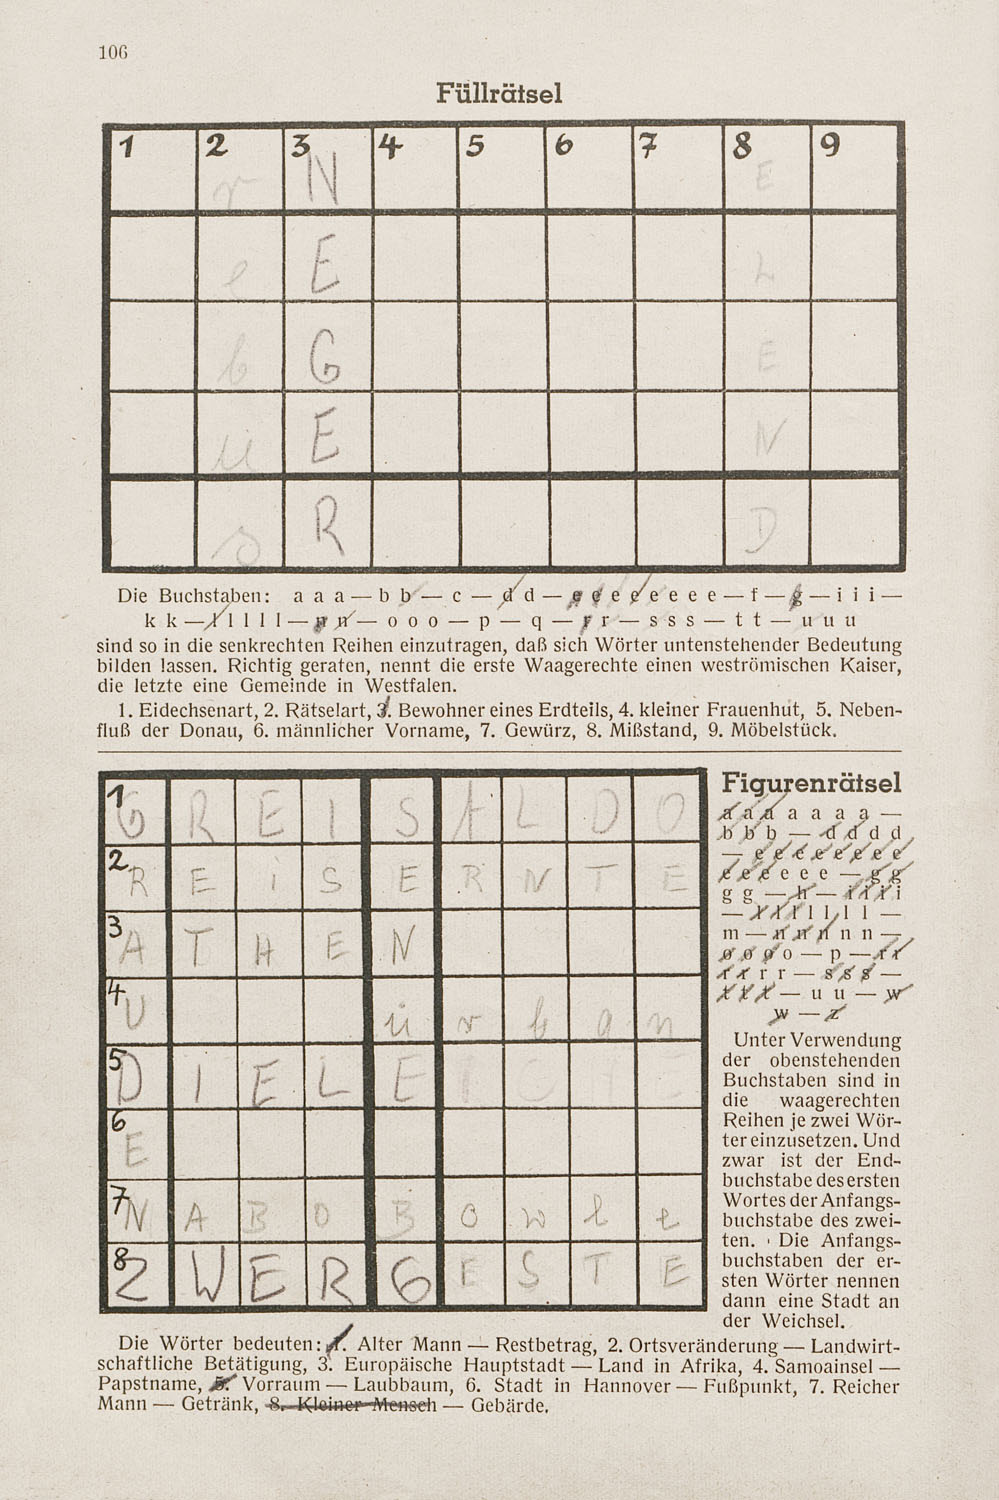 106
Füllrätsel
1 2 3 4 5 6 7 8 9
r N E
e E L
b G E
u E N
s R D
Die Buchstaben: a a a — b b — c — d d — e e e e e e e e — f — g — i i i —
k k — l l l l l — n n — o o o — p — q — r r — s s s — t t — u u u
sind so in die senkrechten Reihen einzutragen, daß sich Wörter untenstehender Bedeutung
bilden lassen. Richtig geraten, nennt die erste Waagerechte einen weströmischen Kaiser,
die letzte eine Gemeinde in Westfalen.
1. Eidechsenart, 2. Rätselart, 3. Bewohner eines Erdteils, 4. kleiner Frauenhut, 5. Neben-
fluß der Donau, 6. männlicher Vorname, 7. Gewürz, 8. Mißstand, 9. Möbelstück.
1 G R E I S A L D O
2 R E i S E R N T E
3 A T H E N
4 U u r b a n
5 D I E L E I C H E
6 E
7 N A B O B o w l e
8 Z W E R G E S T E
Figurenrätsel
a a a a a a a —
b b b — d d d d
— e e e e e e e e
e e e e e e — g g
g g — h — i i i i
— l l l l l l l —
m — n n n n n —
o o o o — p — r r
r r r r — s s s —
t t t — u u — w
w — z
Unter Verwendung
der obenstehenden
Buchstaben sind in
die waagerechten
Reihen je zwei Wör-
ter einzusetzen. Und
zwar ist der End-
buchstabe des ersten
Wortes der Anfangs-
buchstabe des zwei-
ten. Die Anfangs-
buchstaben der er-
sten Wörter nennen
dann eine Stadt an
der Weichsel.
Die Wörter bedeuten: 1. Alter Mann — Restbetrag, 2. Ortsveränderung — Landwirt-
schaftliche Betätigung, 3. Europäische Hauptstadt — Land in Afrika, 4. Samoainsel —
Papstname, 5. Vorraum — Laubbaum, 6. Stadt in Hannover — Fußpunkt, 7. Reicher
Mann — Getränk, 8. Kleiner Mensch — Gebärde.